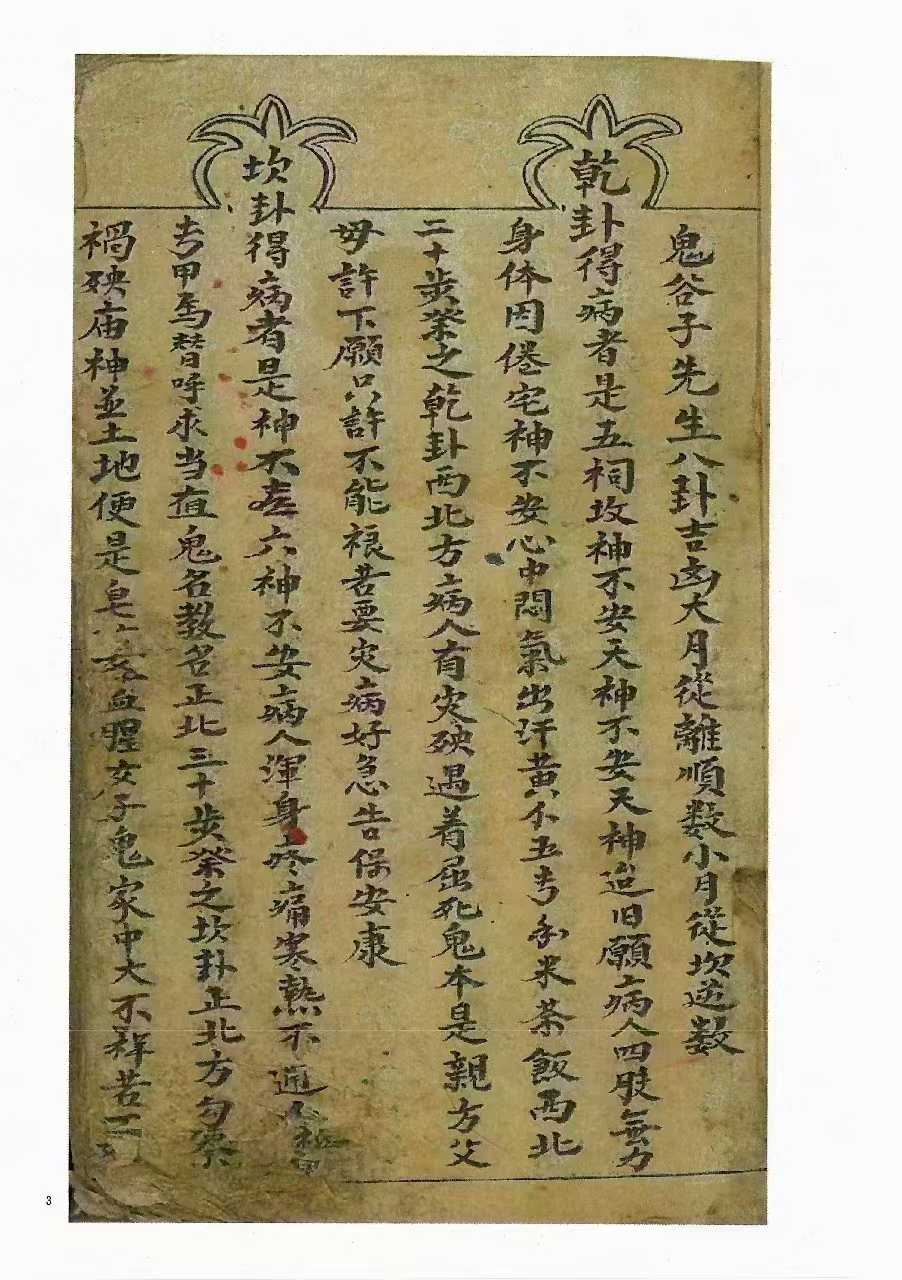 鬼谷子先生八卦吉凶大月從離順数小月從坎逆数
乾卦得病者是五祠坟神不安天神不安天神迨旧願病人四肢無力
身体困倦宅神不安心中悶氣出汗黄不五㐂米茶飯西北
二十步祭之乾卦西北方病人有灾殃遇着屈死鬼本是親方父
母許下願只許不能裉若要灾病好急告保安康
坎卦得病者是神不六神不安病人渾身疼痛寒熱不通
㐂甲馬替呼求当值鬼名教名正北三十步祭之坎卦正北方勾察
禍殃庙神並土地便是皂血腥女子鬼家中大不祥若
3